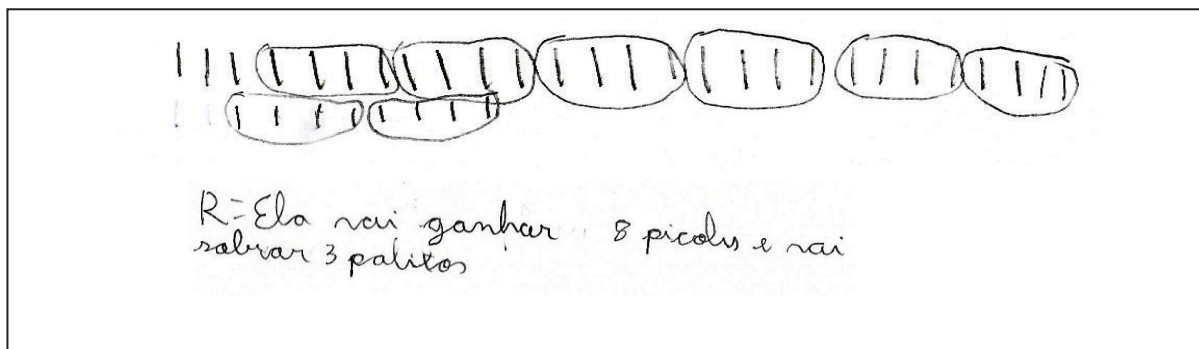 R=Ela vai ganhar 8 picolés e vai
sobrar 3 palitos